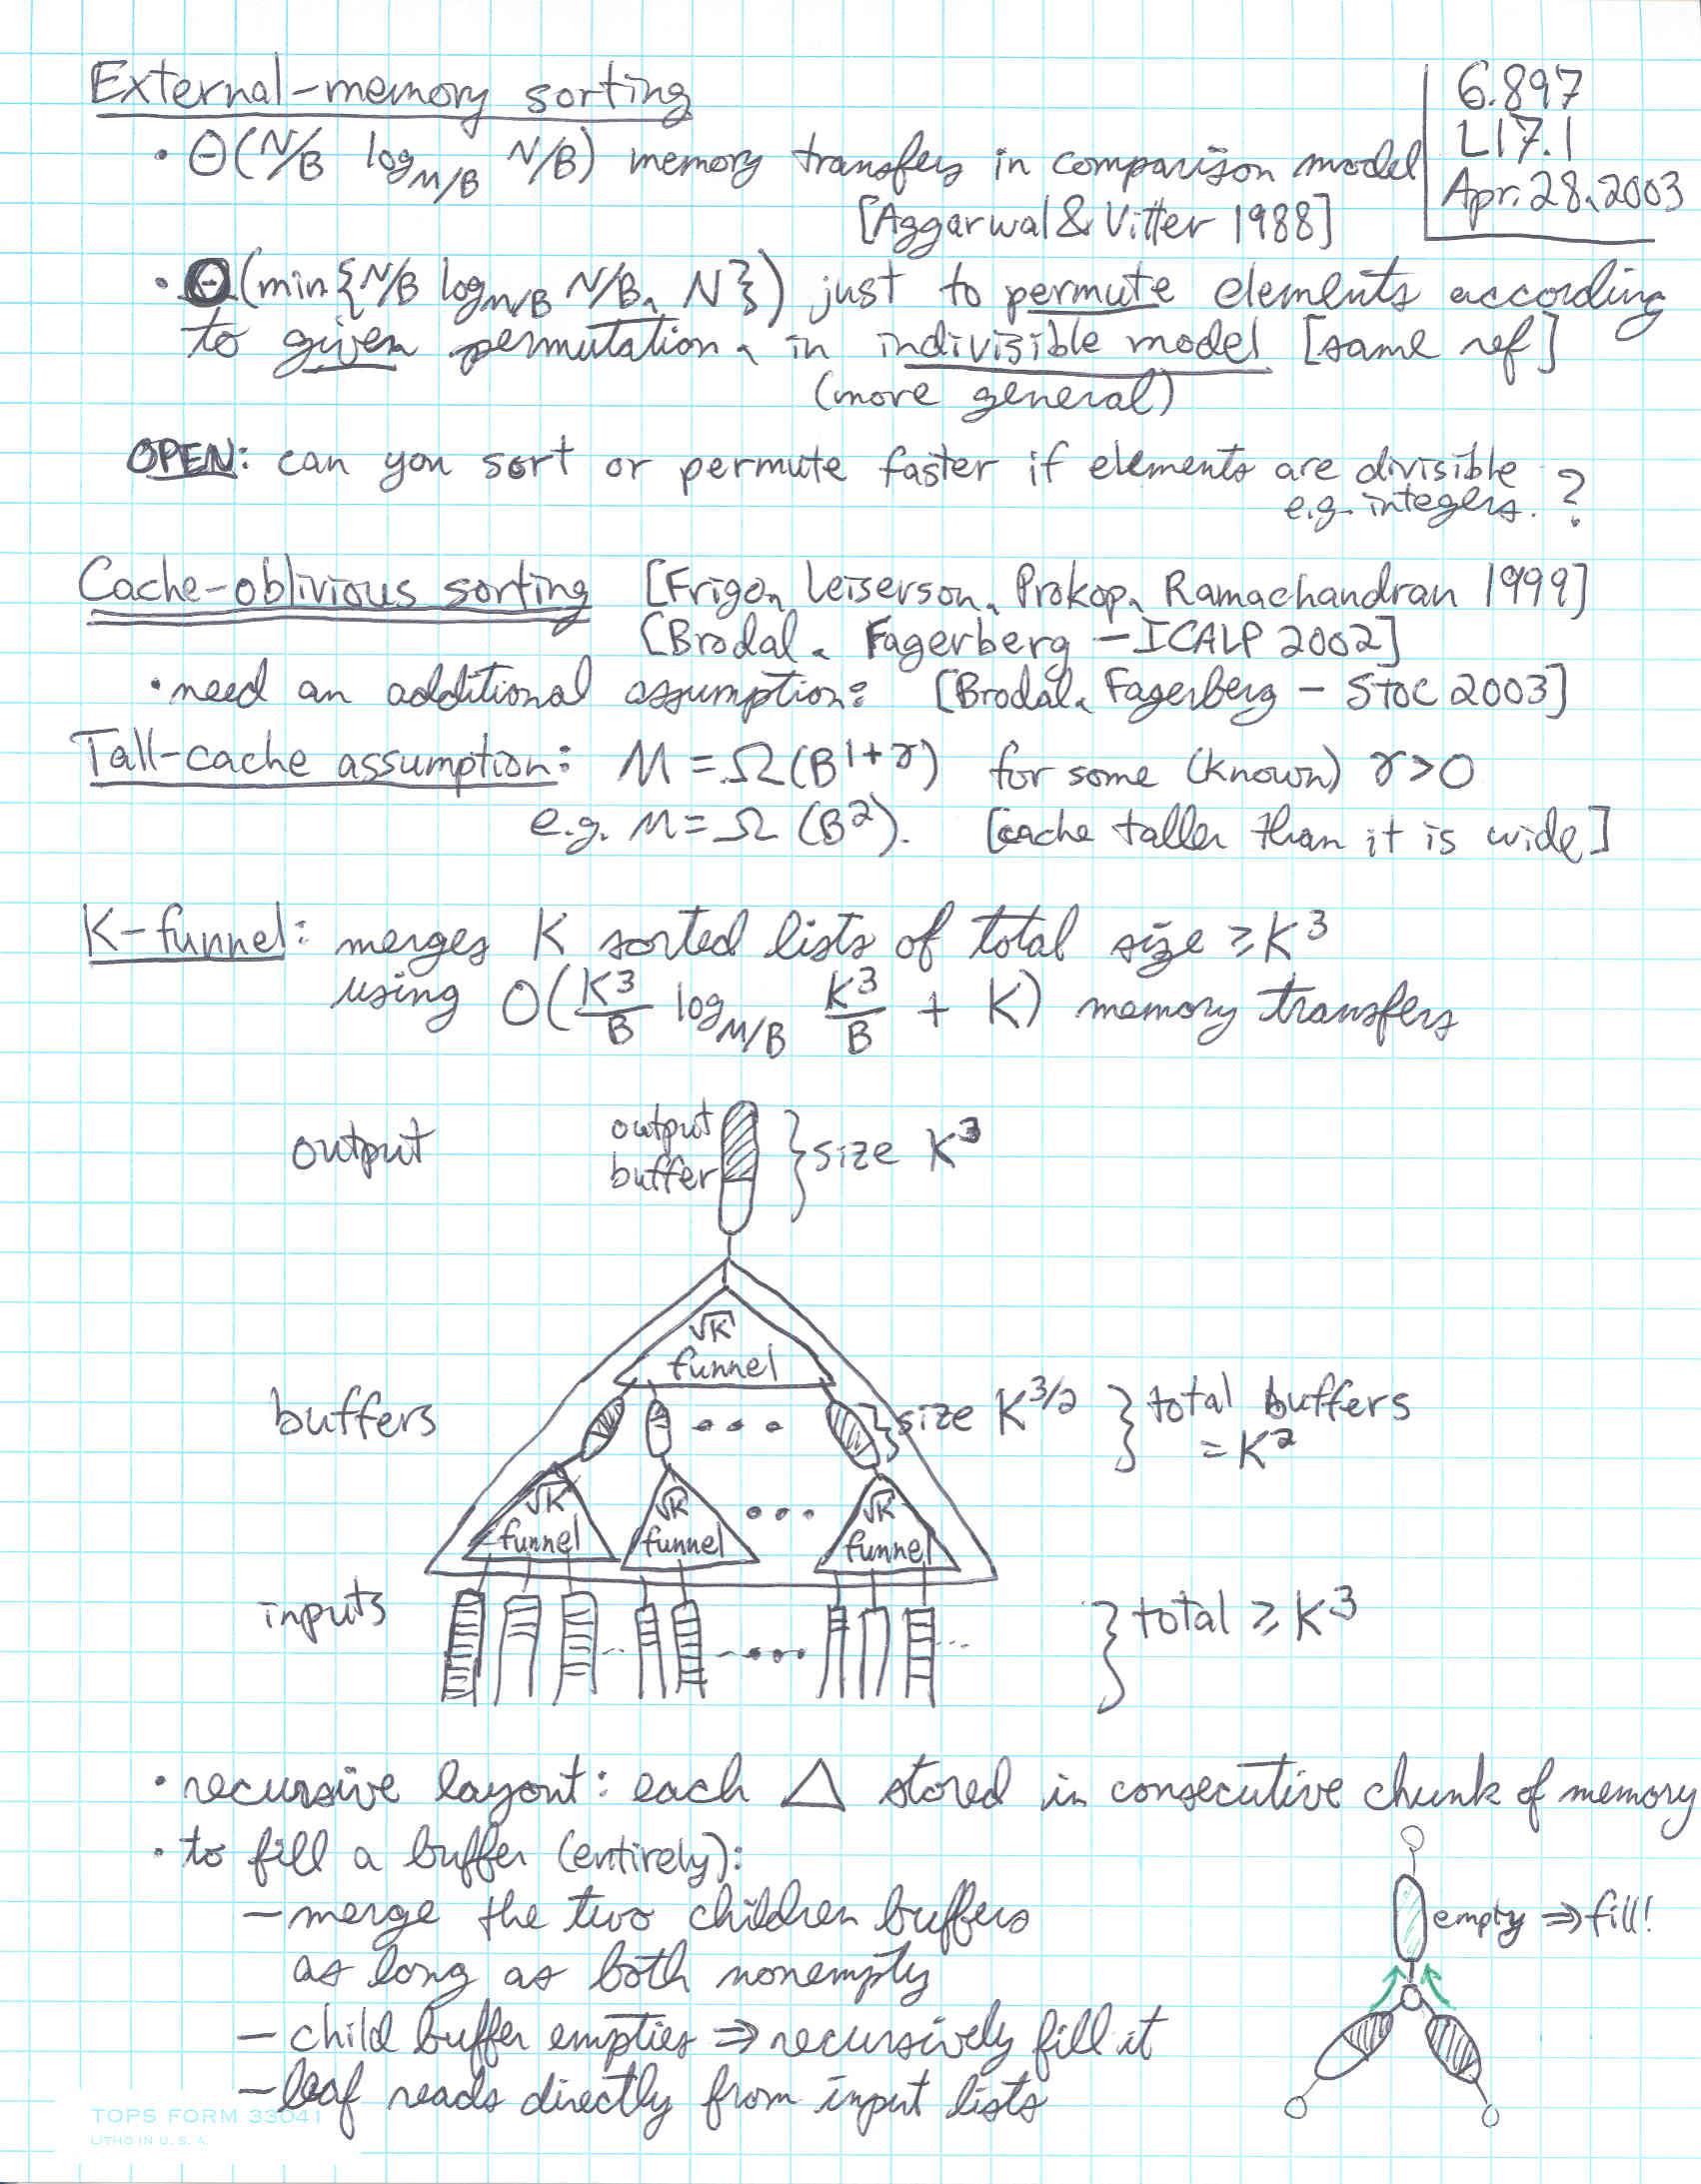 External-memory sorting
6.897
L17.1
Apr. 28, 2003
• Θ(N/B log_{M/B} N/B) memory transfers in comparison model
[Aggarwal & Vitter 1988]
• Θ(min{N/B log_{M/B} N/B, N}) just to permute elements according
to given permutation, in indivisible model [same ref]
(more general)
OPEN: can you sort or permute faster if elements are divisible
e.g. integers. ?
Cache-oblivious sorting [Frigo, Leiserson, Prokop, Ramachandran 1999]
[Brodal, Fagerberg – ICALP 2002]
• need an additional assumption: [Brodal, Fagerberg – STOC 2003]
Tall-cache assumption: M = Ω(B^{1+γ}) for some (known) γ > 0
e.g. M = Ω(B²). [cache taller than it is wide]
K-funnel: merges K sorted lists of total size ≥ K³
using O(K³/B log_{M/B} K³/B + K) memory transfers
output
output
buffer
} size K³
√K
funnel
buffers
} size K^{3/2} } total buffers
= K²
√K
funnel
√K
funnel
√K
funnel
inputs
} total ≥ K³
• recursive layout: each △ stored in consecutive chunk of memory
• to fill a buffer (entirely):
– merge the two children buffers
as long as both nonempty
– child buffer empties ⇒ recursively fill it
– leaf reads directly from input lists
empty ⇒ fill!
TOPS FORM 33041
LITHO IN U. S. A.